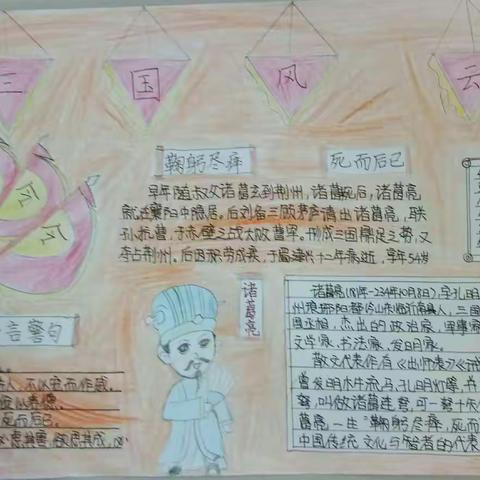 三国风云
鞠躬尽瘁
死而后已
早年随叔父诸葛玄到荆州,诸葛玄死后,诸葛亮
就在襄阳中隐居。后刘备三顾茅庐请出诸葛亮,联
孙抗曹,于赤壁之战大败曹军。形成三国鼎足之势,又
夺占荆州。后因积劳成疾,于建兴十二年逝世,享年54岁
诸葛亮
诸葛亮(181年-234年10月8日),字孔明
州琅琊阳都今山东临沂市县人,三国
国丞相,杰出的政治家,军事家
文学家、书法家、发明家。
散文代表作有《出师表》《诫
曾发明木牛流马、孔明灯等,
弩,叫做诸葛连弩,可一弩十矢
葛亮一生“鞠躬尽瘁,死而
中国传统文化与智者的代表
言警句
人,不以宠而作威。
死而后已